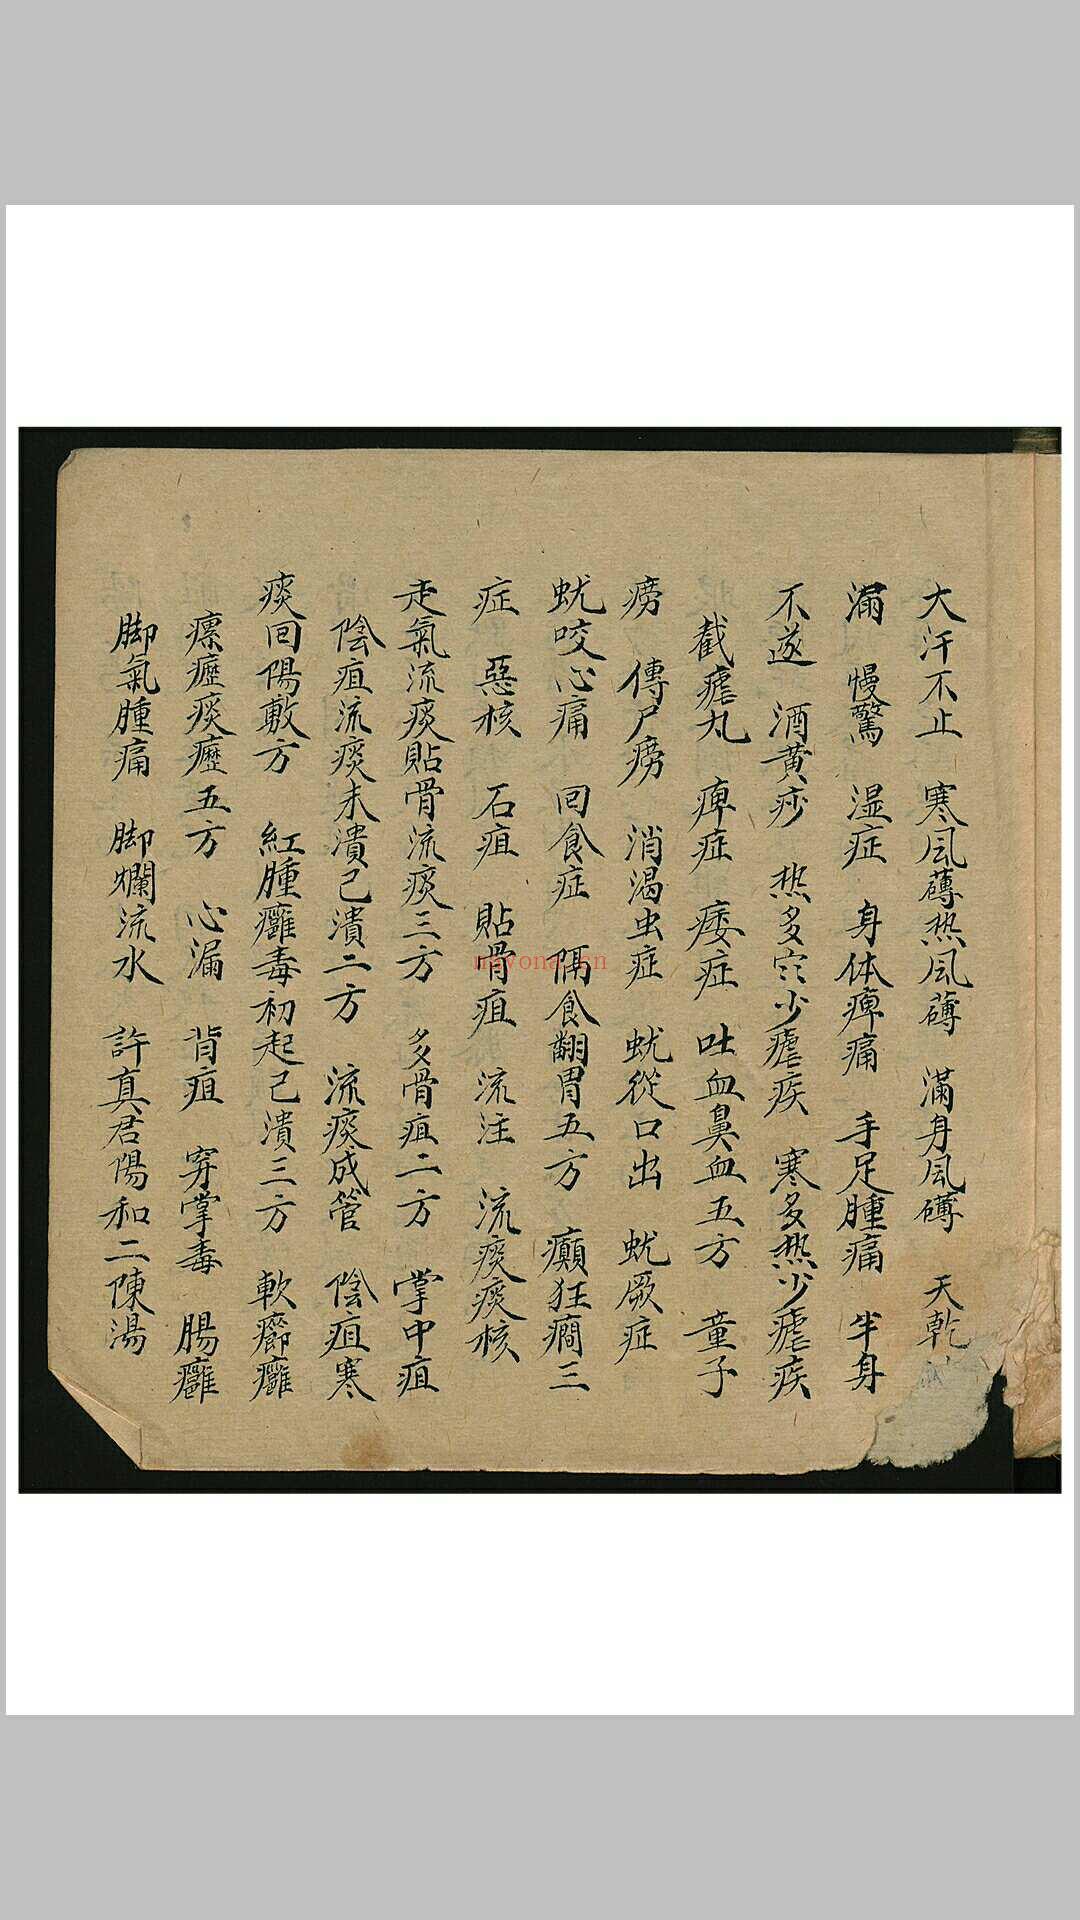 大汗不止　寒風薄热風薄　滿身風礡　天乾
漏　慢驚　湿症　身体痺痛　手足腫痛　半身
不遂　酒黄痧　热多寒少瘧疾　寒多热少瘧疾
截瘧丸　痺症　痿症　吐血鼻血五方　童子
痨　傳尸痨　消渴虫症　蚘從口出　蚘厥症
蚘咬心痛　回食症　隔食翻胃五方　癲狂癇三
症　惡核　石疽　貼骨疽　流注　流痰痰核
走氣流痰貼骨流痰三方　多骨疽二方　掌中疽
陰疽流痰未潰已潰二方　流痰成管　陰疽寒
痰回陽敷方　紅腫癰毒初起已潰三方　軟癤癰
瘰癧痰癧五方　心漏　背疽　穿掌毒　腸癰
脚氣腫痛　脚爛流水　許真君陽和二陳湯